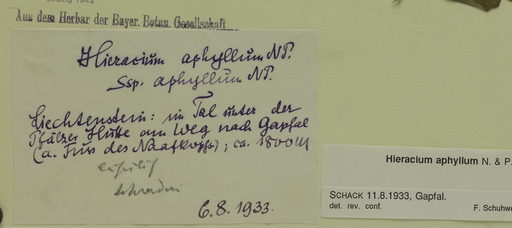 Leipzig 1942
Aus dem Herbar der Bayer. Botan. Gesellschaft
Hieracium aphyllum NP.
Ssp. aphyllum NP.
Liechtenstein: im Tal unter der
Pfälzer Hütte am Weg nach Gapfal
(a. Fuss des Naafkopfs); ca. 1800 m
6.8.1933.
Hieracium aphyllum N. & P.
SCHACK 11.8.1933, Gapfal.
det. rev. conf.
F. Schuhwe